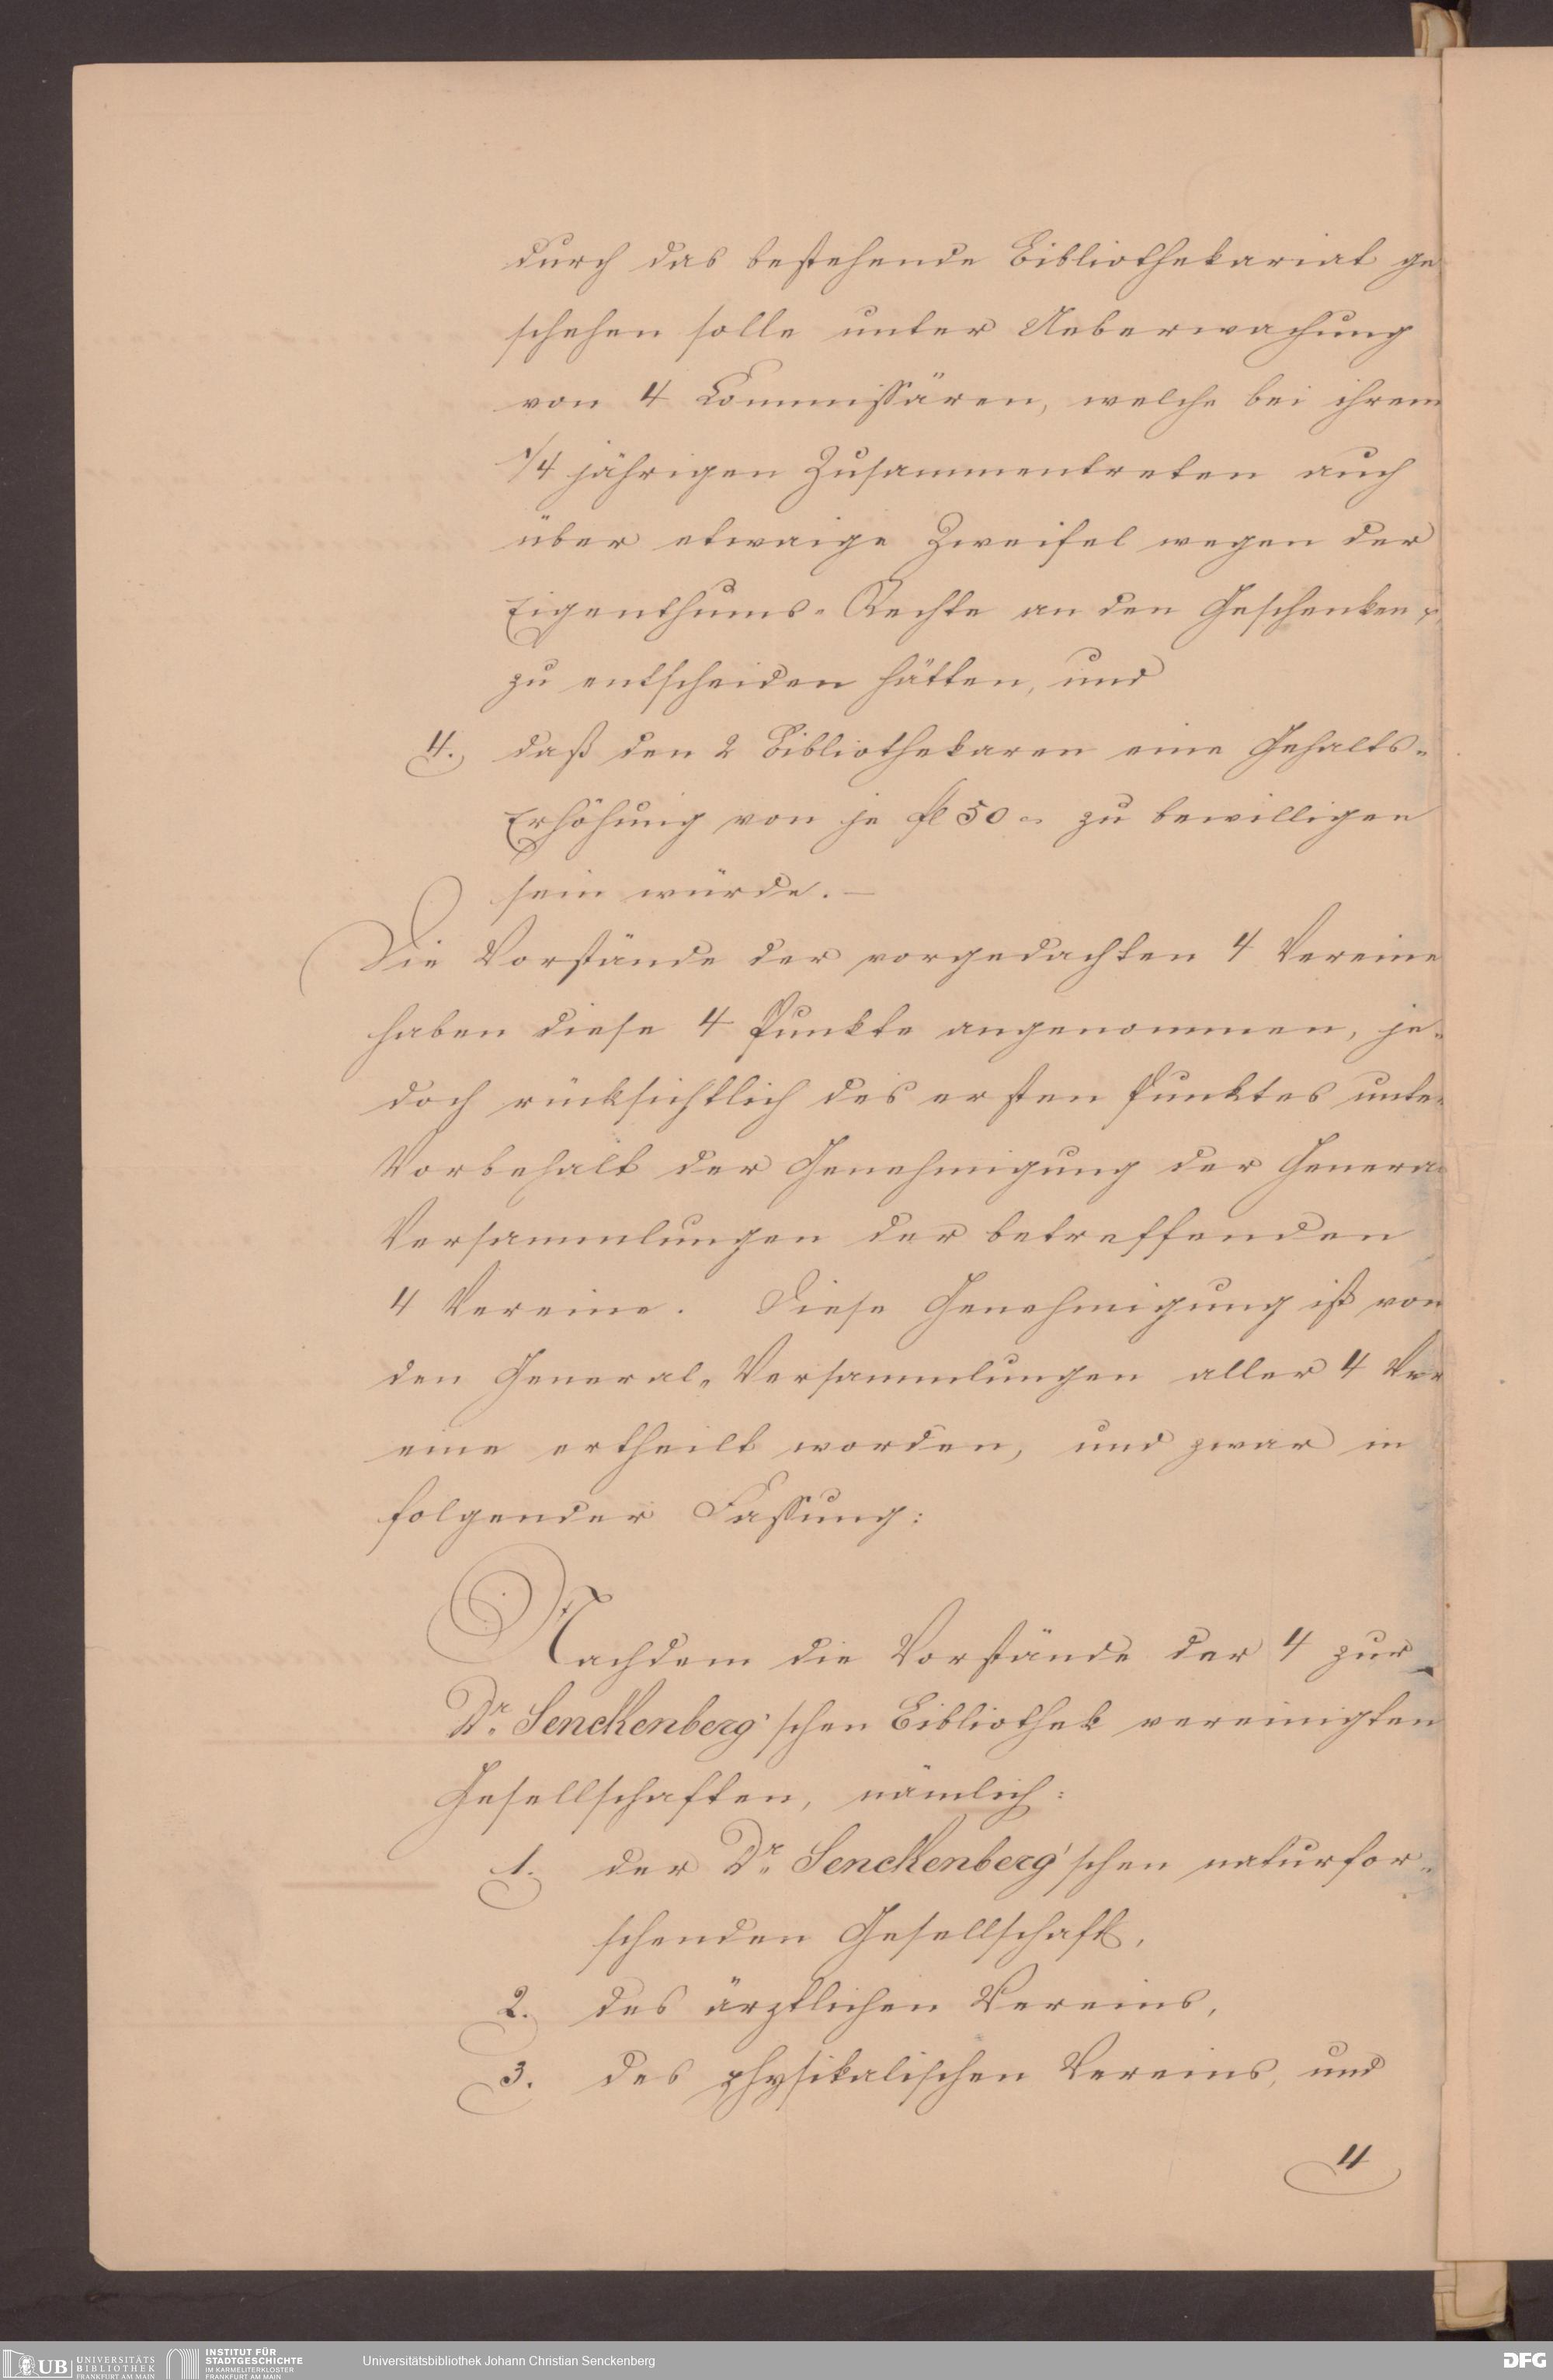 durch das bestehende Bibliothekariat ge
schehen solle unter Ueberwachung
von 4 Commissären, welche bei ihrem
1/4 jährigen Zusammentreten auch
über etwaige Zweifel wegen der
Eigenthums-Rechte an den Geschenken
zu entscheiden hätten, und
4. daß den 2 Bibliothekaren eine Gehalts-
Erhöhung von je fl 50 zu bewilligen
sein würde. —
Die Vorstände der vorgedachten 4 Vereine
haben diese 4 Punkte angenommen, je-
doch rücksichtlich des ersten Punktes unter
Vorbehalt der Genehmigung der Genera
Versammlungen der betreffenden
4 Vereine. Diese Genehmigung ist von
den General-Versammlungen aller 4 Ver
eine ertheilt worden, und zwar in
folgender Fassung:
Nachdem die Vorstände der 4 zur
Dr. Senckenberg'schen Bibliothek vereinigten
Gesellschaften, nämlich:
1. der Dr. Senckenberg'schen naturfor-
schenden Gesellschaft,
2. des ärztlichen Vereins,
3. des physikalischen Vereins, und
4
UB UNIVERSITÄTS BIBLIOTHEK FRANKFURT AM MAIN
INSTITUT FÜR STADTGESCHICHTE IM KARMELITERKLOSTER FRANKFURT AM MAIN
Universitätsbibliothek Johann Christian Senckenberg
DFG